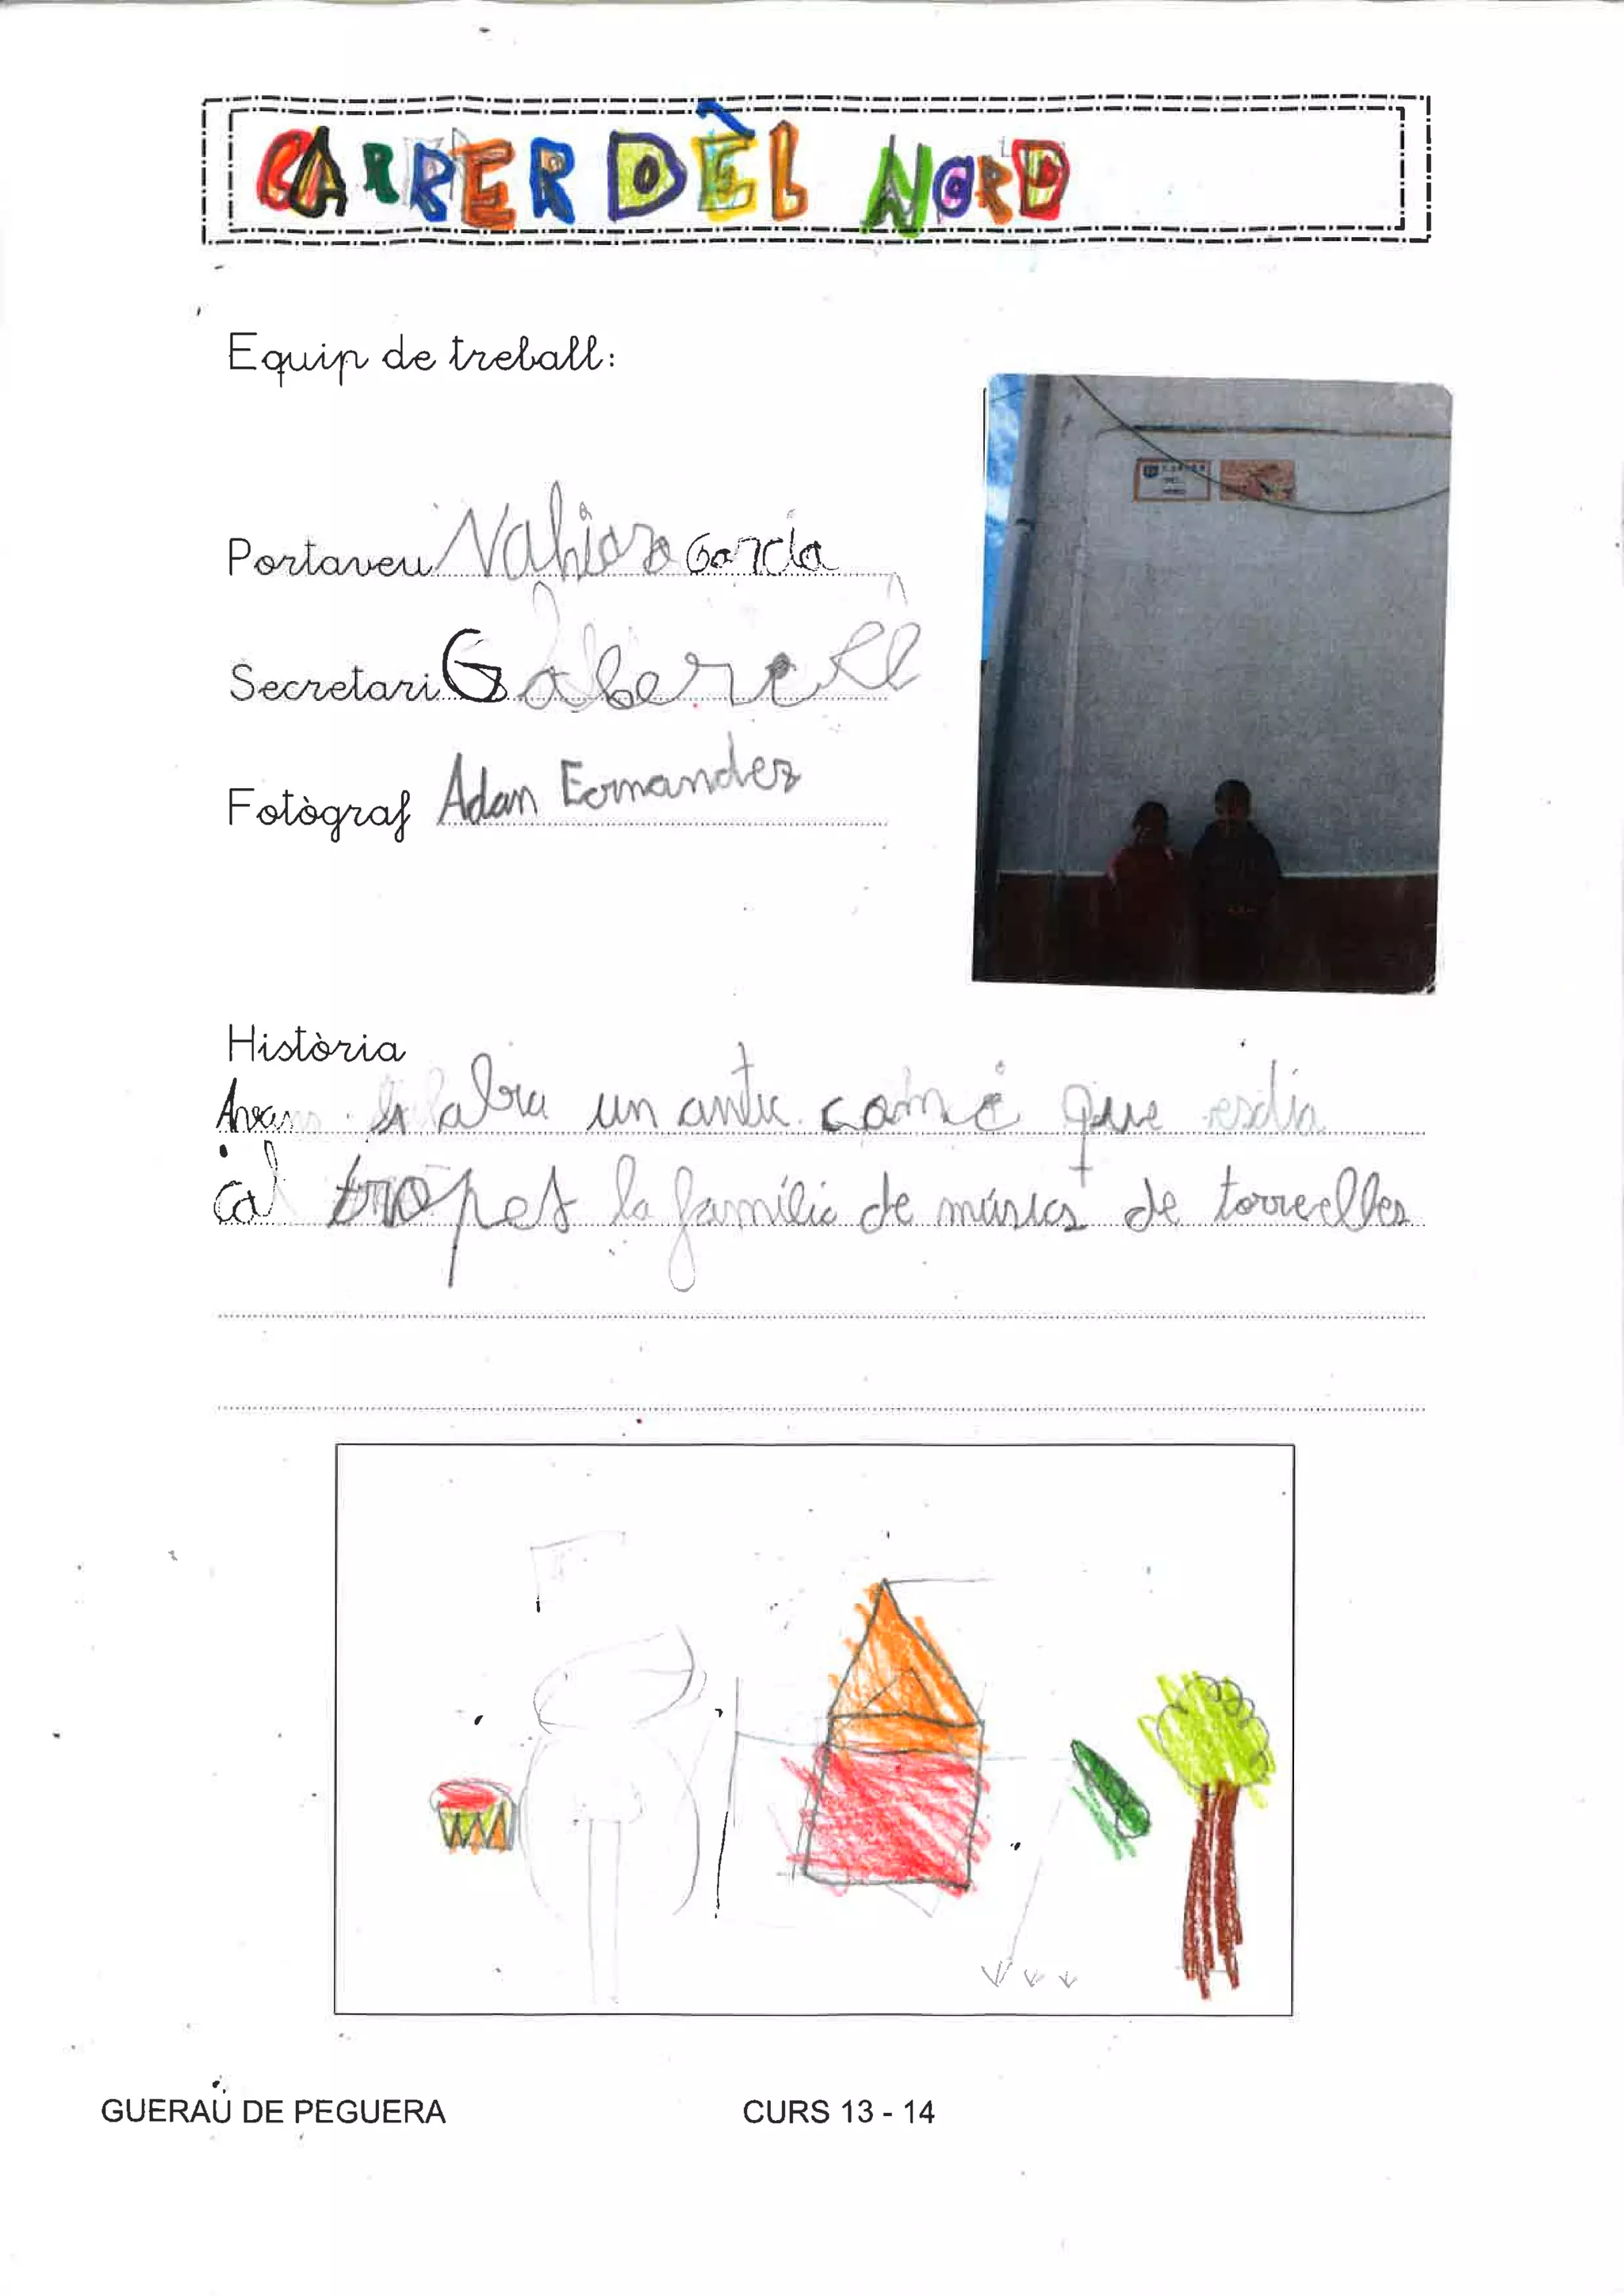 CARRER DÈL NORD
Equip de treball:
Portaveu Nahiara Garcia
Secretari
Fotògraf Adan Fernandez
Història
un antic camí que
cal tropes la família de músics de torrelles
GUERAU DE PEGUERA CURS 13 - 14